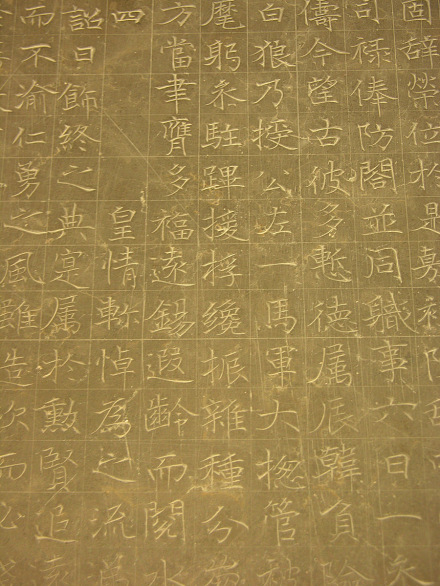 固辞榮位於是
司祿俸防閤並同職事六日一
儔今望古彼多慙德属辰韓負
白狼乃授公左一馬軍大揔管
麾躬亲駐蹕援桴纔振雜種分
方當聿膺多福遠錫遐齡而閱水
四皇情軫悼為之流
詔曰飾終之典寔属於勳賢追
而不渝仁勇之風雖